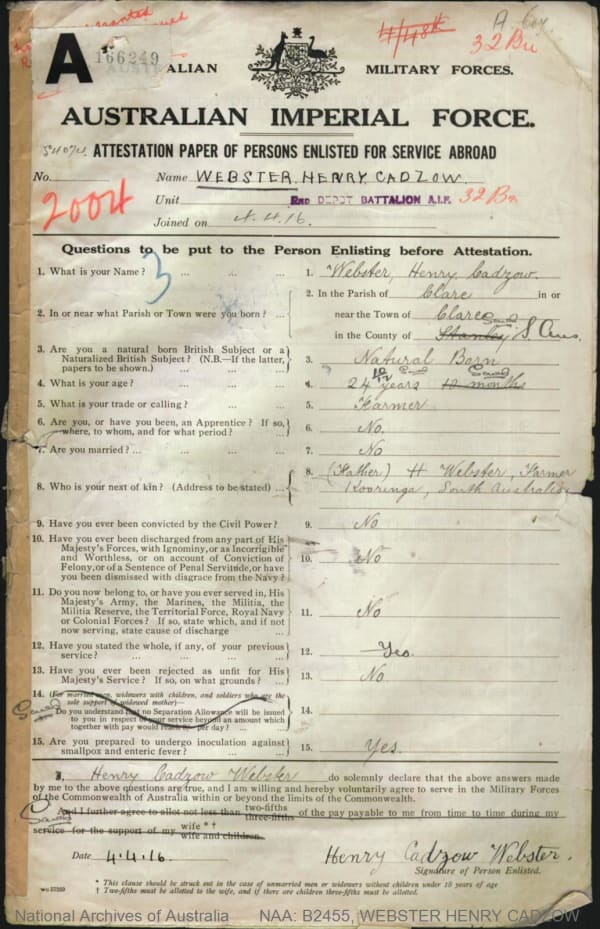 A. Coy.
32 Bn
A
166249
AUSTRALIAN MILITARY FORCES.
AUSTRALIAN IMPERIAL FORCE.
ATTESTATION PAPER OF PERSONS ENLISTED FOR SERVICE ABROAD
No. 2004 Name WEBSTER, HENRY CADZOW.
Unit DEPOT BATTALION A.I.F. 32 Bn
Joined on 4.4.16.
Questions to be put to the Person Enlisting before Attestation.
1. What is your Name? ... ... ... 1. Webster, Henry Cadzow.
2. In or near what Parish or Town were you born? ... 2. In the Parish of Clare in or
near the Town of Clare
in the County of Stanley S. Aus.
3. Are you a natural born British Subject or a
Naturalized British Subject? (N.B.—If the latter,
papers to be shown.) ... ... 3. Natural Born
4. What is your age? ... ... ... 4. 24 10/12 years 10 months
5. What is your trade or calling? ... ... 5. Farmer
6. Are you, or have you been, an Apprentice? If so,
where, to whom, and for what period? ... 6. No.
7. Are you married? ... ... ... 7. No
8. Who is your next of kin? (Address to be stated) ... 8. (Father) H Webster, Farmer
Kooringa, South Australia
9. Have you ever been convicted by the Civil Power? 9. No
10. Have you ever been discharged from any part of His
Majesty's Forces, with Ignominy, or as Incorrigible
and Worthless, or on account of Conviction of
Felony, or of a Sentence of Penal Servitude, or have
you been dismissed with disgrace from the Navy? 10. No
11. Do you now belong to, or have you ever served in, His
Majesty's Army, the Marines, the Militia, the
Militia Reserve, the Territorial Force, Royal Navy
or Colonial Forces? If so, state which, and if not
now serving, state cause of discharge ... 11. No
12. Have you stated the whole, if any, of your previous
service? ... ... ... 12. Yes.
13. Have you ever been rejected as unfit for His
Majesty's Service? If so, on what grounds? ... 13. No
14. (For married men, widowers with children, and soldiers who are the
sole support of widowed mother)—
Do you understand that no Separation Allowance will be issued
to you in respect of your service beyond an amount which
together with pay would reach 8s. per day? ... 14.
15. Are you prepared to undergo inoculation against
smallpox and enteric fever? ... ... 15. Yes.
I, Henry Cadzow Webster do solemnly declare that the above answers made
by me to the above questions are true, and I am willing and hereby voluntarily agree to serve in the Military Forces
of the Commonwealth of Australia within or beyond the limits of the Commonwealth.
And I further agree to allot not less than two-fifths three-fifths of the pay payable to me from time to time during my
service for the support of my wife * † wife and children.
Date 4.4.16. Henry Cadzow Webster.
Signature of Person Enlisted.
* This clause should be struck out in the case of unmarried men or widowers without children under 18 years of age
† Two-fifths must be allotted to the wife, and if there are children three-fifths must be allotted.
National Archives of Australia NAA: B2455, WEBSTER HENRY CADZOW